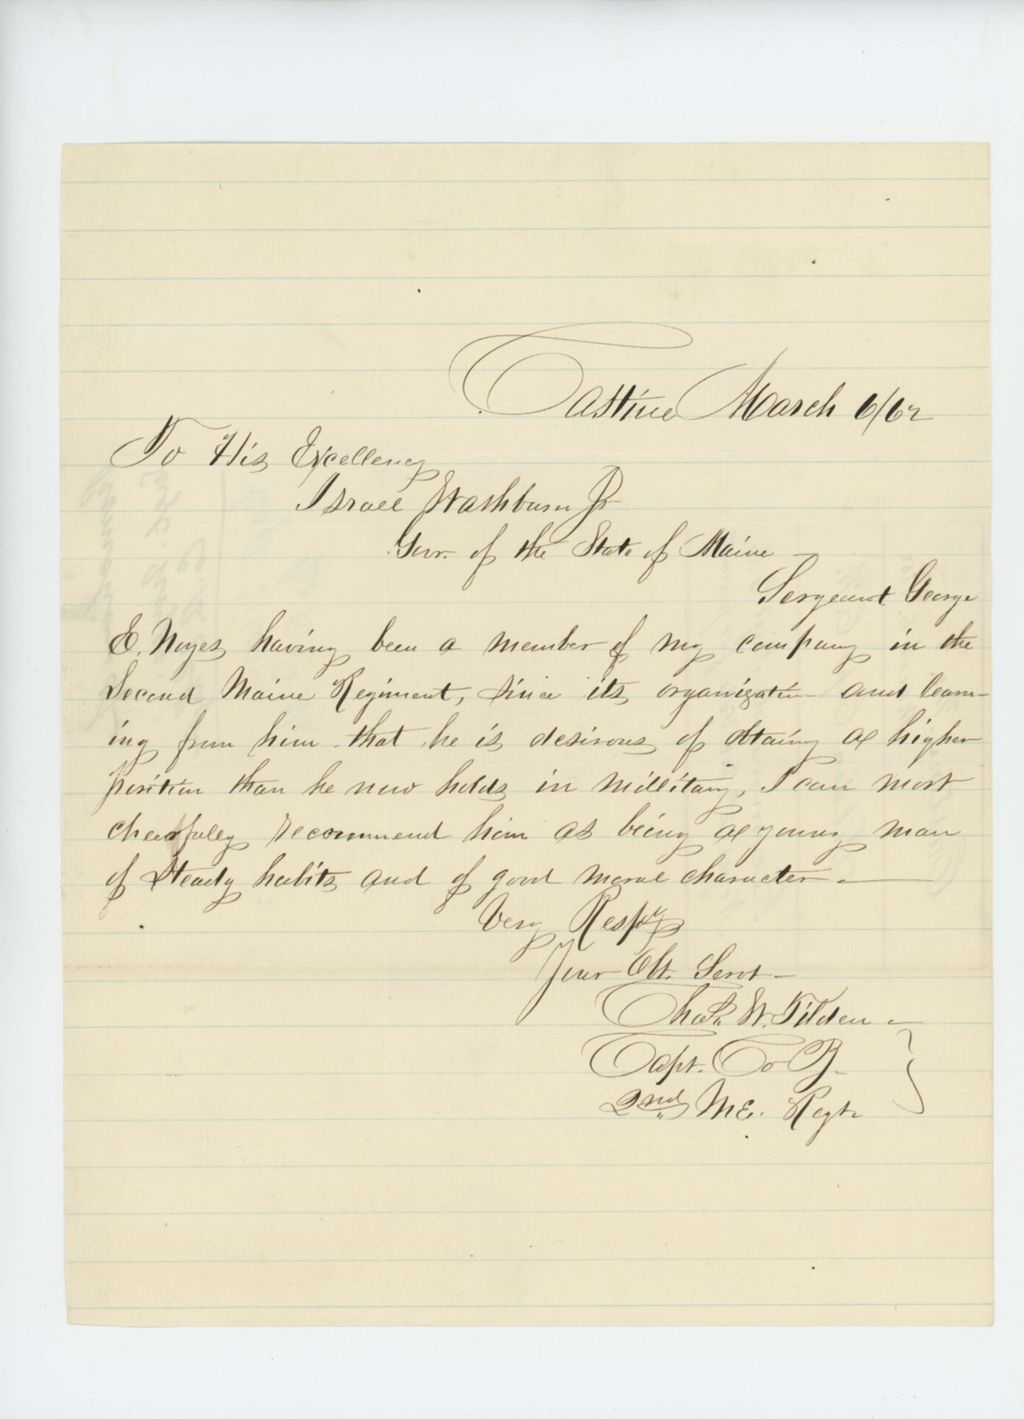 Castine March 6/62
To His Excellency
Israel Washburn Jr
Gov. of the State of Maine
Sergeant George
E. Noyes having been a member of my company in the
Second Maine Regiment, since its organization and learn-
ing from him that he is desirous of obtaing a higher
position than he now holds in millitary, I can most
cheerfully recommend him as being a young man
of steady habits and of good moral character.
Very Respfy
Your Obt. Servt
Chas. W. Tilden
Capt. Co B.
2nd ME. Regt